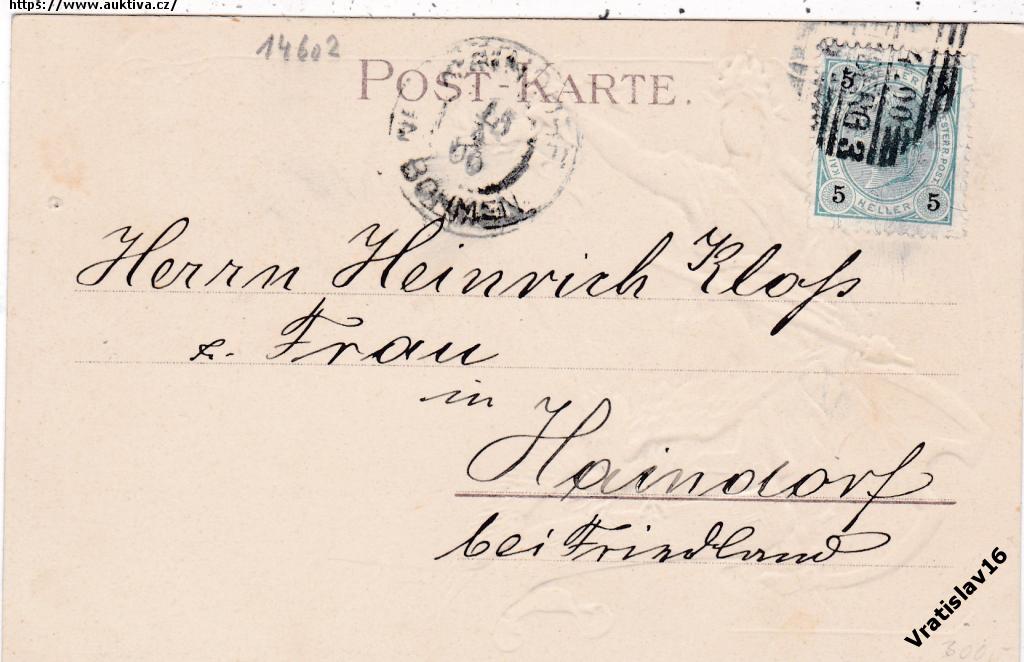 https://www.auktiva.cz/
14602
POST-KARTE.
BÖHMEN
5
5 HELLER 5
Herrn Heinrich Kloß
z. Frau
in
Haindorf
bei Friedland
Vratislav16